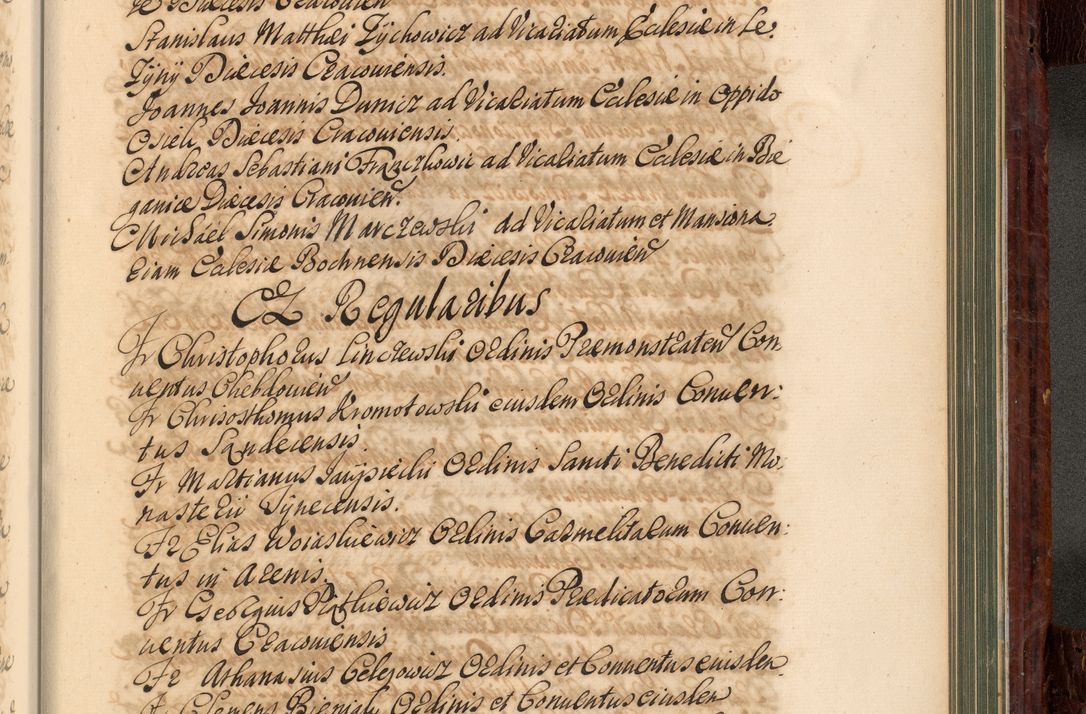 Diæcesis Cracovien
Stanislaus Matthæi Zychowicz ad Vicariatum Ecclesiæ in Le:
Zyny Diæcesis Cracoviensis.
Joannes Joannis Dunicz ad Vicariatum Ecclesiæ in Oppido
Osiek Diæcesis Cracoviensis.
Andreas Sebastiani Franczkowic ad Vicariatum Ecclesiæ in Bie
ganice Diæcesis Cracovien.
Michael Simonis Marczewski ad Vicariatum et Mansiona
riam Ecclesiæ Bochnensis Diæcesis Cracovien
Ex Regularibus
Fr Christophorus Linczewski Ordinis Præmonstraten Con
ventus Chebdovien
Fr Chrisosthomus Kromotowski eiusdem Ordinis Conven:
tus Sandecensis.
Fr Martianus Ordinis Sancti Benedicti Mo:
nasterii Tynecensis.
Fr Elias Woiaskiewicz Ordinis Carmelitarum Conven:
tus in Arenis
Fr Georgius Ratkiewicz Ordinis Prædicatorum Con:
ventus Cracoviensis
Fr Athanasius Celejowicz Ordinis et Conventus eiusdem
Fr Clemens Bieniak Ordinis et Conventus eiusdem